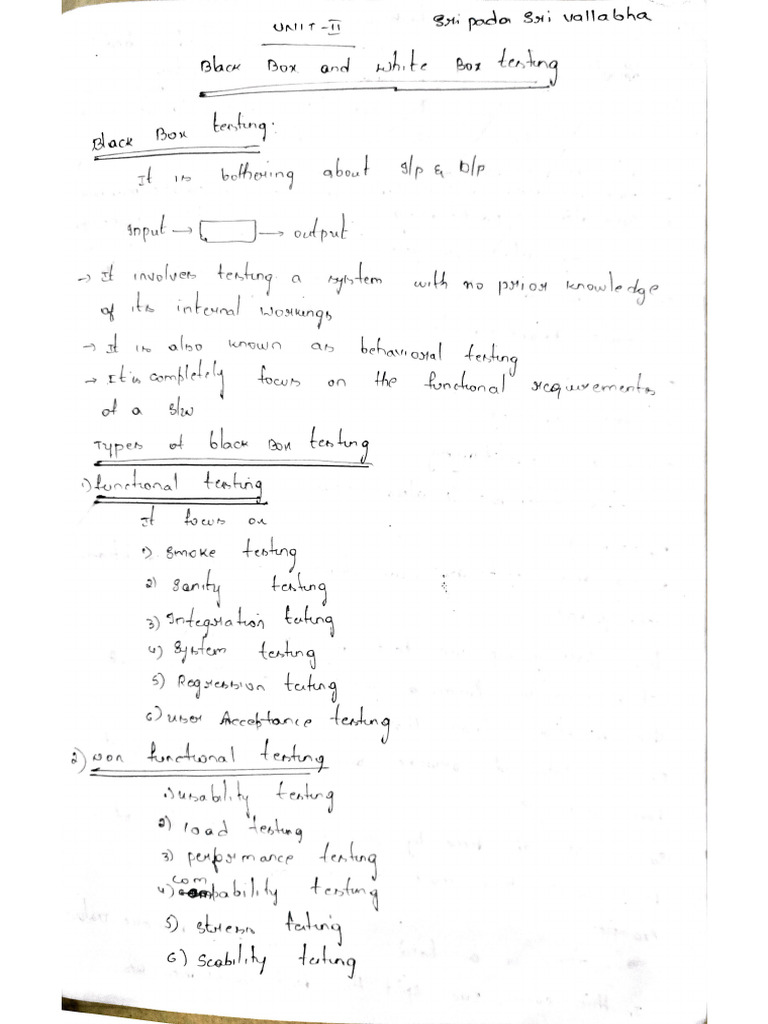 UNIT-II
Sri pada Sri vallabha
Black Box and white Box testing
Black Box testing:
It is bothering about I/p & O/p
Input → → output
→ It involves testing a system with no prior knowledge
of its internal workings
→ It is also known as behavioral testing
→ It is completely focus on the functional requirements
of a S/w
Types of black Box testing
1) functional testing
It focus on
1) Smoke testing
2) Sanity testing
3) Integration testing
4) System testing
5) Regression testing
6) User Acceptance testing
2) Non functional testing
1) usability testing
2) load testing
3) performance testing
4) compability testing
5) stress testing
6) Scability testing